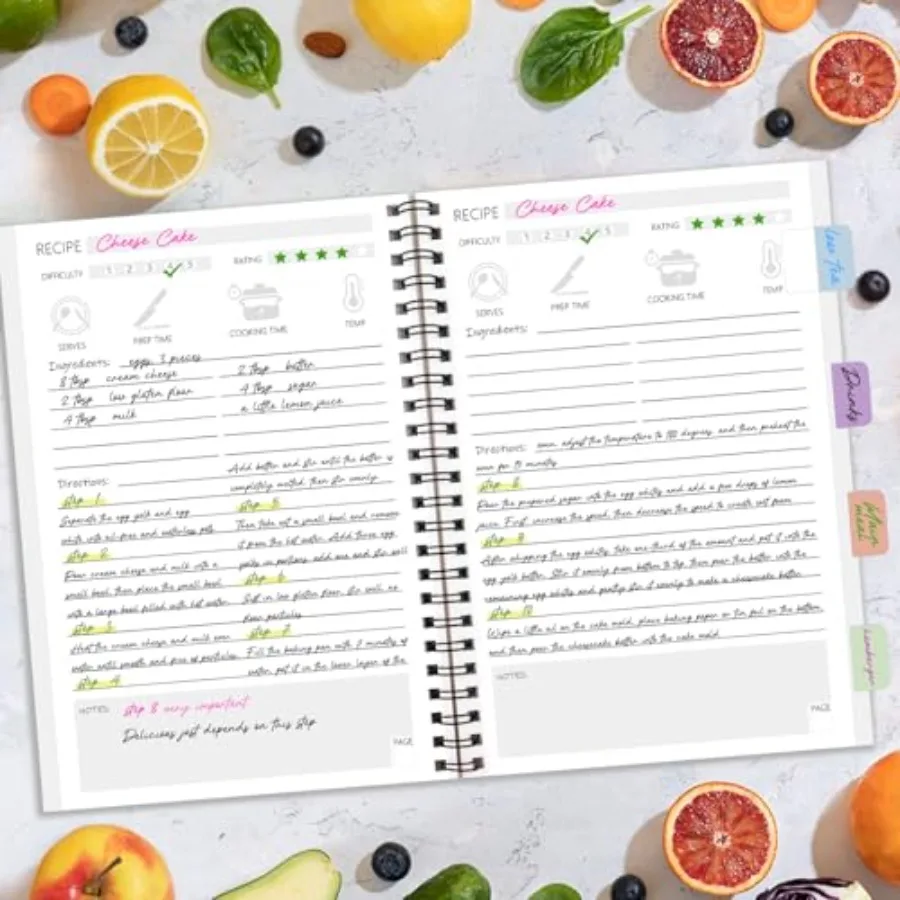 RECIPE Cheese Cake
DIFFICULTY 1 2 3 4 5 RATING
SERVES PREP TIME COOKING TIME TEMP
Ingredients: eggs 3 pieces
8 tbsp cream cheese
2 tbsp low gluten flour
4 tbsp milk
2 tbsp butter
4 tbsp sugar
a little lemon juice
Directions:
step 1
Separate the egg yolk and egg
white with oil-free and waterless
step 2
Pour cream cheese and milk into a
small bowl, then place the small bowl
into a large bowl filled with hot water
step 3
Heat the cream cheese and milk over
water until smooth and free of particles
step 4
Add butter and stir until the butter is
completely melted, then stir evenly
step 5
Then take out a small bowl and remove
it from the hot water. Add three egg
yolks in portions, add one and stir well
step 6
Sift in low gluten flour, stir well, no
flour particles
step 7
Fill the baking pan with of
water, put it in the lower layer of the
NOTES: step 8 very important
Delicious just depends on this step
PAGE
RECIPE Cheese Cake
DIFFICULTY 1 2 3 4 5 RATING
SERVES PREP TIME COOKING TIME TEMP
Ingredients:
Directions: oven, adjust the temperature to degrees, and then preheat the
oven for minutes
step 8
Pour the prepared sugar into the egg whites and add a few drops of lemon
juice. First, increase the speed, then decrease the speed to create
step 9
After whipping the egg whites, take one-third of the amount and put it into the
egg yolk batter. Stir it evenly from bottom to top, then pour the batter into the
remaining egg whites and gently stir it evenly to make a cheesecake batter
step 10
Wipe a little oil on the cake mold, place baking paper or tin foil on the bottom,
and then pour the cheesecake batter into the cake mold
NOTES:
PAGE
Drinks
Main
meal